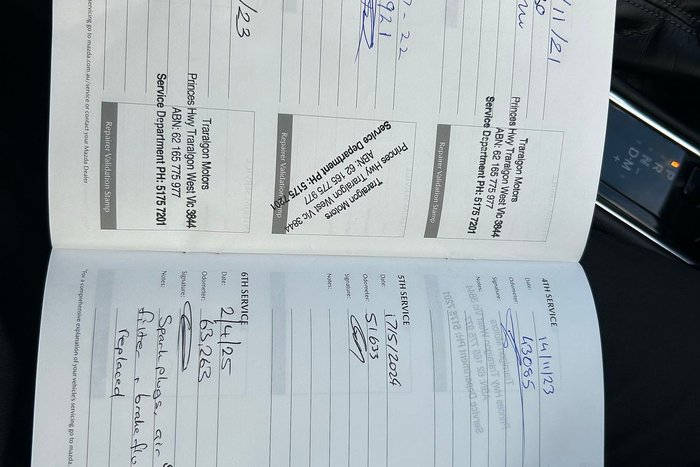 /11/21
Traralgon Motors
Princes Hwy Traralgon West Vic 3844
ABN: 62 165 775 977
Service Department PH: 5175 7201
Repairer Validation Stamp
22
921
Traralgon Motors
Princes Hwy Traralgon West Vic 3844
ABN: 62 165 775 977
Service Department PH: 5175 7201
Repairer Validation Stamp
/23
Traralgon Motors
Princes Hwy Traralgon West Vic 3844
ABN: 62 165 775 977
Service Department PH: 5175 7201
Repairer Validation Stamp
servicing go to mazda.com.au/service or contact your Mazda Dealer
4TH SERVICE
Date: 14/11/23
Odometer: 43085
Signature:
Notes:
5TH SERVICE
Date: 17/5/2024
Odometer: 51633
Signature:
Notes:
6TH SERVICE
Date: 2/4/25
Odometer: 63,263
Signature:
Notes: Spark plugs, air
filter, brake flu
replaced
For a comprehensive explanation of your vehicle's servicing go to mazda
P
R
N
D
M
+
-